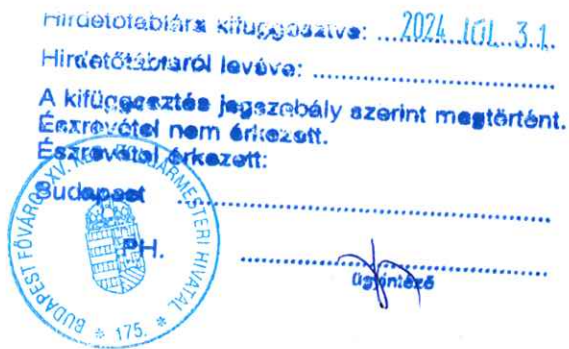 Hirdetőtáblára kifüggesztve: 2024 JÚL 31.
Hirdetőtábláról levéve: ..............................
A kifüggesztés jogszabály szerint megtörtént.
Észrevétel nem érkezett.
Észrevétel érkezett:
Budapest ..............................
PH. ..............................
ügyintéző
BUDAPEST FŐVÁROS XV. POLGÁRMESTERI HIVATAL * 175. *